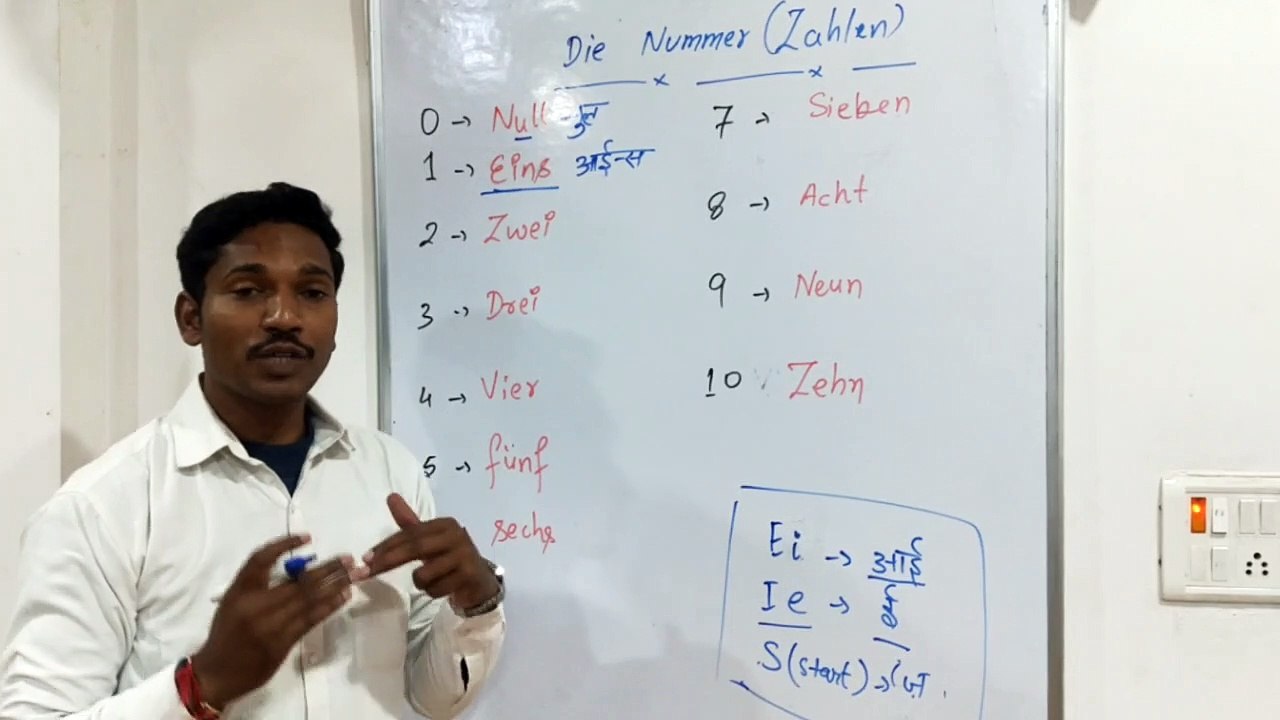 Die Nummer (Zahlen)
0 → Null
1 → Eins आईन्स
2 → Zwei
3 → Drei
4 → Vier
5 → fünf
sechs
7 → Sieben
8 → Acht
9 → Neun
10 Zehn
Ei → आई
Ie → ई
S (start) →